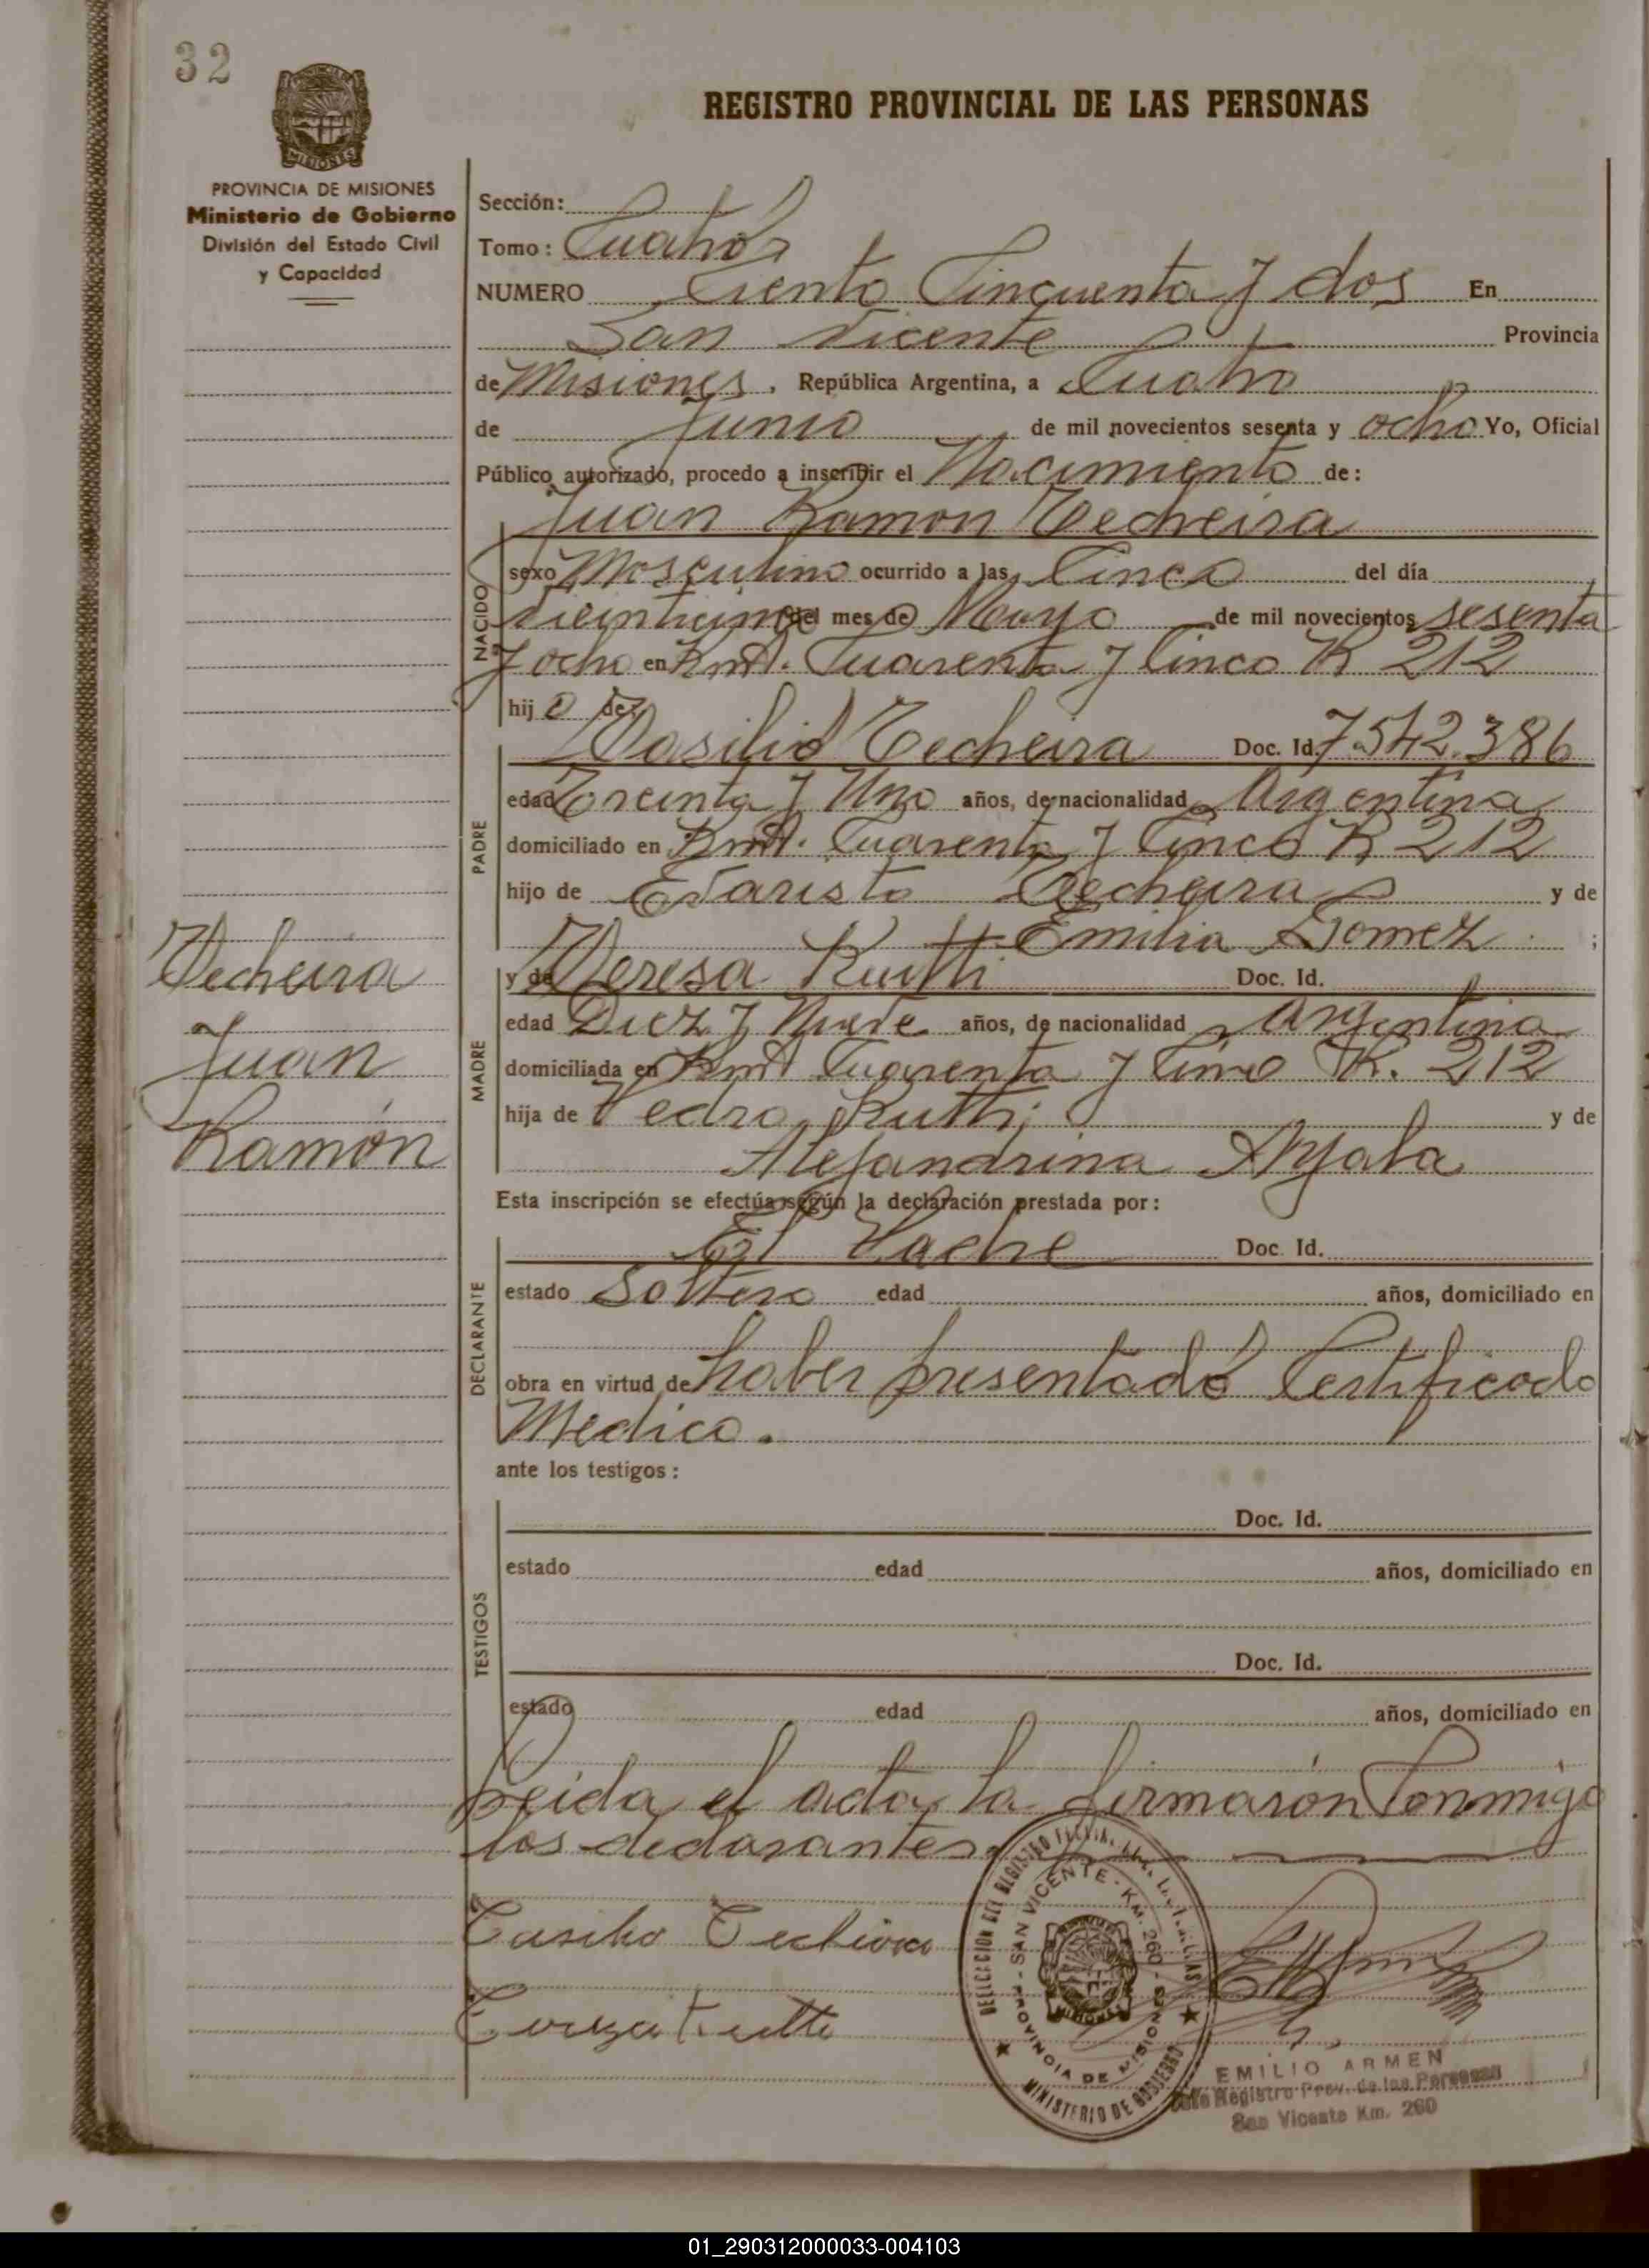 32
MISIONES
PROVINCIA DE MISIONES
Ministerio de Gobierno
División del Estado Civil
y Capacidad
REGISTRO PROVINCIAL DE LAS PERSONAS
Sección:
Tomo: Cuatro
NUMERO Ciento Cincuenta y dos En
San Vicente Provincia
de Misiones, República Argentina, a Cuatro
de Junio de mil novecientos sesenta y ocho Yo, Oficial
Público autorizado, procedo a inscribir el Nacimiento de:
Juan Ramon Techeira
NACIDO
sexo Masculino ocurrido a las Cinco del día
Veinticinco del mes de Mayo de mil novecientos sesenta
y ocho en Kmt. Cuarenta y Cinco R 212
hijo de
PADRE
Basilio Techeira Doc. Id. 7.542.386
edad Treinta y Uno años, de nacionalidad Argentina
domiciliado en Kmt. Cuarenta y Cinco R 212
hijo de Evaristo Techeira y de
Emilia Gomez ;
MADRE
y de Teresa Rutti Doc. Id.
edad Diez y Nueve años, de nacionalidad Argentina
domiciliada en Kmt Cuarenta y Cinco R. 212
hija de Pedro Rutti y de
Alejandrina Ayala
Techeira
Juan
Ramón
Esta inscripción se efectúa según la declaración prestada por:
DECLARANTE
El Padre Doc. Id.
estado Soltero edad años, domiciliado en
obra en virtud de haber presentado Certificado
Medico.
ante los testigos:
TESTIGOS
Doc. Id.
estado edad años, domiciliado en
Doc. Id.
estado edad años, domiciliado en
Leida el acta, la firmarón Conmigo
los declarantes
DELEGACION DEL REGISTRO
SAN VICENTE - KM. 260 - PROVINCIA DE MISIONES
MISIONES
MINISTERIO DE GOBIERNO
EMILIO ARMEN
Registro Prov. de las Personas
San Vicente Km. 260
01_290312000033-004103